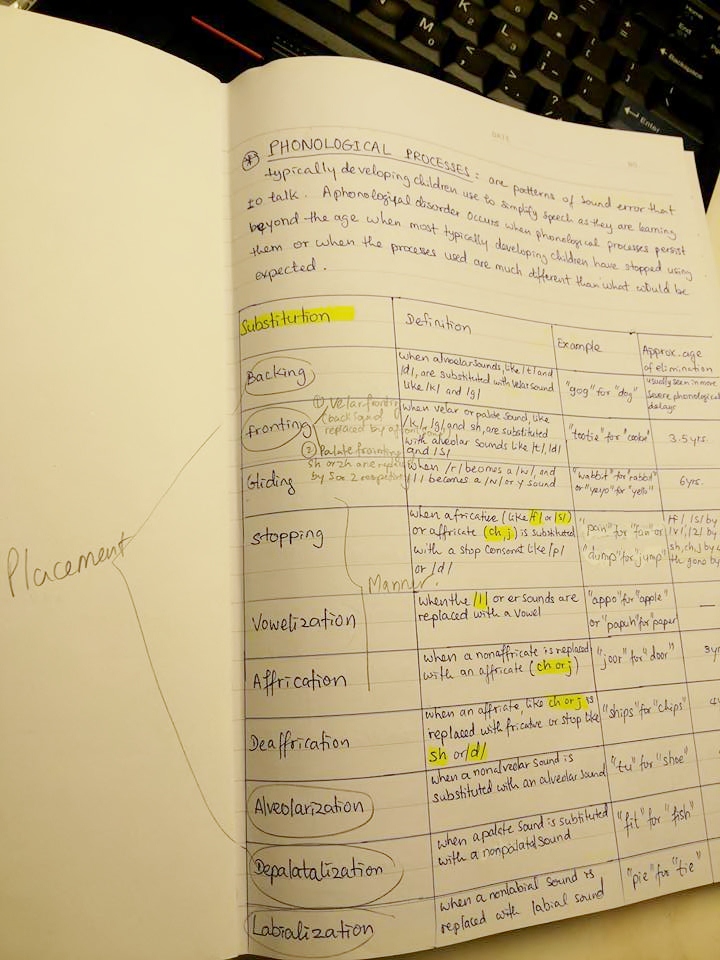 DATE
NO
PHONOLOGICAL PROCESSES: are patterns of sound error that
typically developing children use to simplify speech as they are learning
to talk. A phonological disorder occurs when phonological processes persist
beyond the age when most typically developing children have stopped using
them or when the processes used are much different than what would be
expected.
Substitution
Definition
Example
Approx. age
of elimination
Backing
when alveolar sounds, like /t/ and
/d/, are substituted with velar sound
like /k/ and /g/
"gog" for "dog"
usually seen in more
severe phonological
delays
fronting
① Velar fronting
(back sound
replaced by a front
② Palate fronting
sh or zh are
by S or Z respectively
when velar or palate sound, like
/k/, /g/ and sh, are substituted
with alveolar sounds like /t/, /d/
and /S/
"tootie" for "cookie"
3.5 yrs.
Gliding
when /r/ becomes a /w/, and
/l/ becomes a /w/ or y sound
"wabbit" for "rabbit"
or "yeyo" for "yello"
6yrs.
stopping
when a fricative (like /f/ or /s/)
or affricate (ch, j) is substituted
with a stop consonant like /p/
or /d/
"pain" for "fan" or
"dump" for "jump"
/f/ /s/ by
/v/, /z/ by
sh, ch, j by
th gone by
Manner.
Placement
Vowelization
when the /l/ or er sounds are
replaced with a vowel
"appo" for "apple"
or "papuh" for "paper"
—
Affrication
when a nonaffricate is replaced
with an affricate (ch or j)
"joor" for "door"
Deaffrication
when an affricate, like ch or j is
replaced with fricative or stop like
sh or /d/
"ships" for "chips"
Alveolarization
when a nonalveolar sound is
substituted with an alveolar sound
"tu" for "shoe"
Depalatalization
when a palate sound is substituted
with a nonpalatal sound
"fit" for "fish"
Labialization
when a nonlabial sound is
replaced with labial sound
"pie" for "tie"
N
M
K
L
O
P
Home
Backspace
Enter